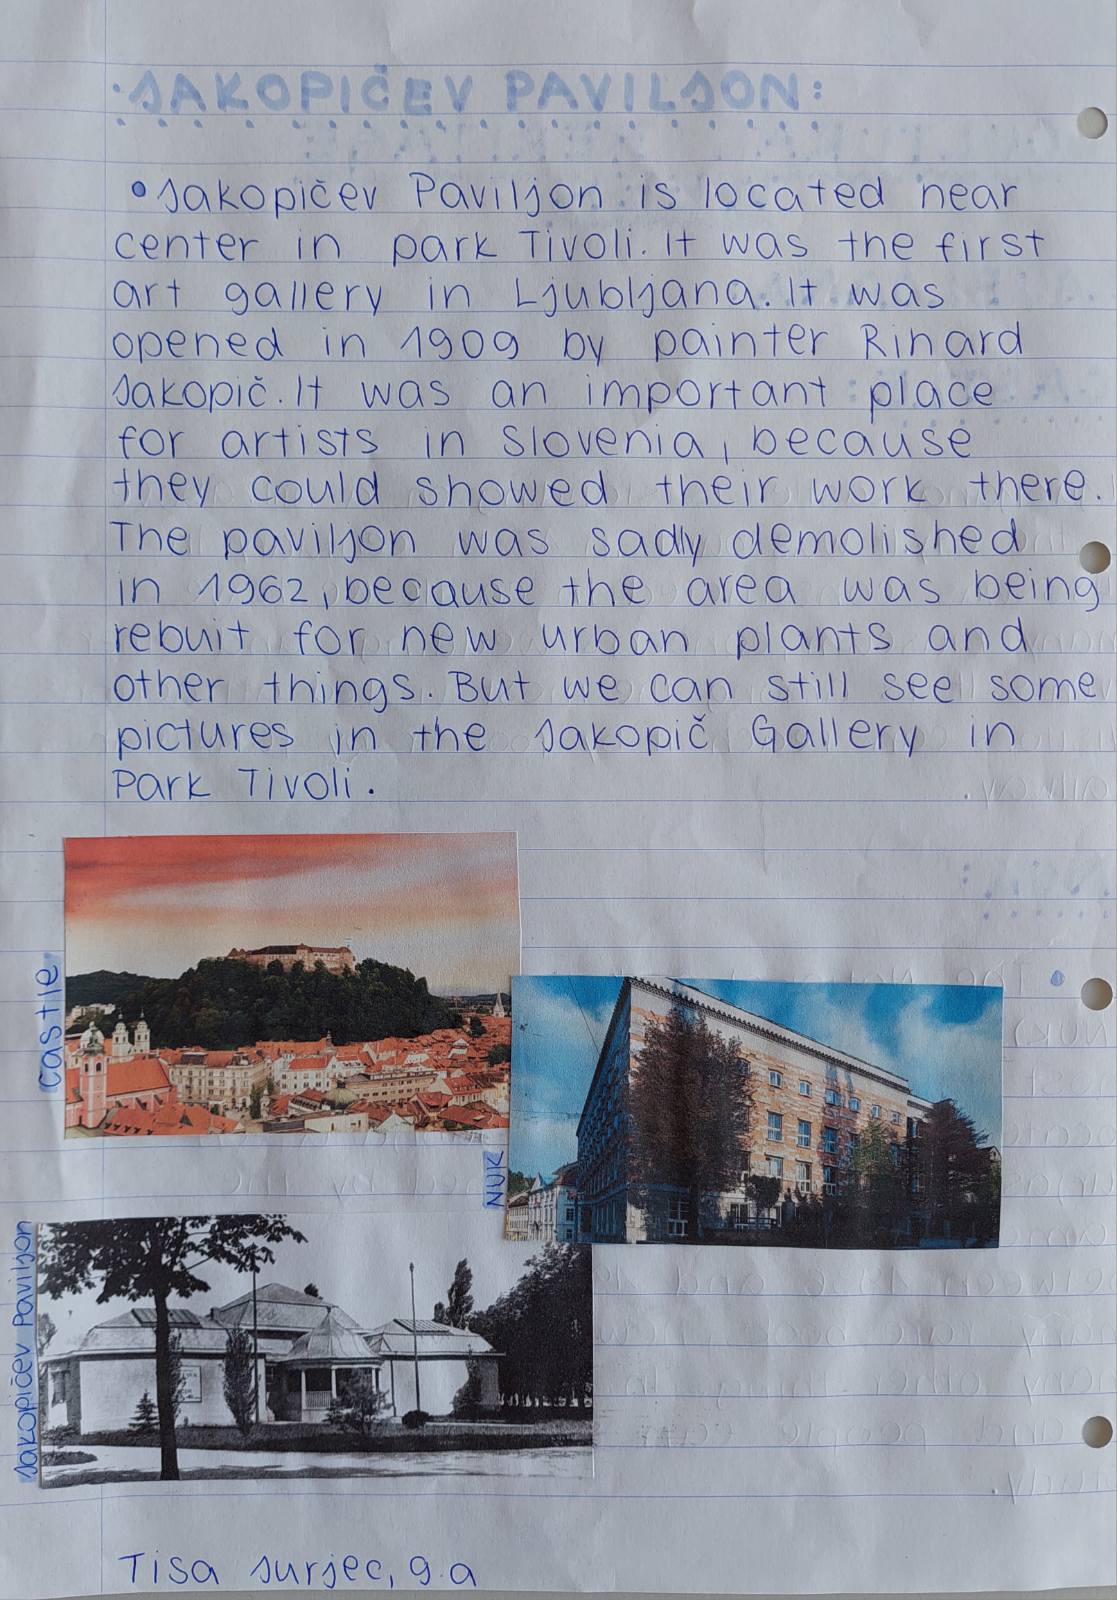 ·JAKOPIČEV PAVILJON:
• Jakopičev Paviljon is located near
center in park Tivoli. It was the first
art gallery in Ljubljana. It was
opened in 1909 by painter Rihard
Jakopič. It was an important place
for artists in Slovenia, because
they could showed their work there.
The paviljon was sadly demolished
in 1962, because the area was being
rebuit for new urban plants and
other things. But we can still see some
pictures in the Jakopič Gallery in
Park Tivoli.
castle
NUK
Jakopičev Paviljon
Tisa Jurjec, 9.a